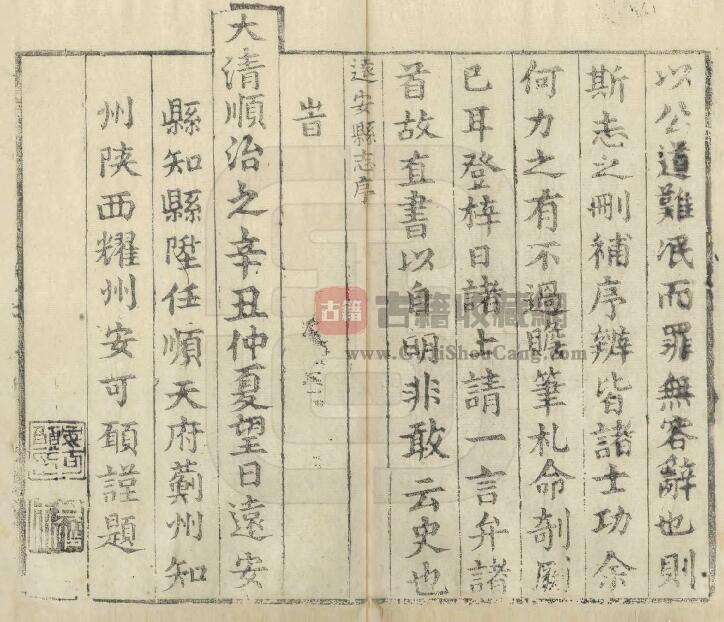 以公道難泯而罪無容辭也則
斯志之刪補序辨皆諸士功余
何力之有不過贍筆札命剞劂
已耳登梓日諸士請一言弁諸
首故直書以自明非敢云史也
遠安縣志序
旹
大清順治之辛丑仲夏望日遠安
縣知縣陞任順天府薊州知
州陝西耀州安可願謹題
古籍
古籍收藏網
www.GuJiShouCang.com